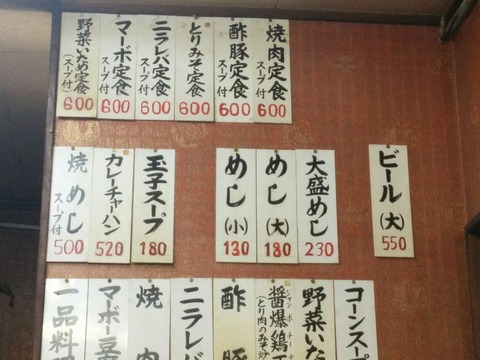 焼肉定食
スープ付
600
酢豚定食
スープ付
600
とりみそ定食
スープ付
600
ニラレバ定食
スープ付
600
マーボ定食
スープ付
600
野菜いため定食
(スープ付)
600
ビール(大)
550
大盛めし
230
めし(大)
180
めし(小)
130
玉子スープ
180
カレーチャーハン
520
焼めし
スープ付
500
コーンスー
野菜いた
醤爆鶏丁
(とり肉のみそ炒
酢豚
ニラレバ
焼肉
マーボー豆腐
一品料理